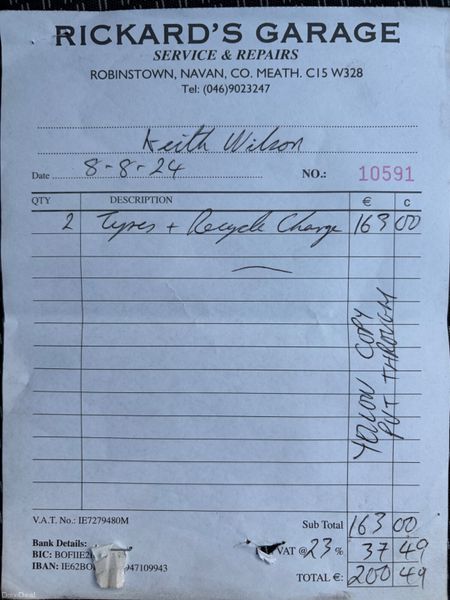 RICKARD'S GARAGE
SERVICE & REPAIRS
ROBINSTOWN, NAVAN, CO. MEATH. C15 W328
Tel: (046)9023247
Keith Wilson
Date 8-8-24 NO.: 10591
QTY DESCRIPTION € c
2 Tyres + Recycle Charge 163 00
YELLOW COPY
PUT THROUGH
V.A.T. No.: IE7279480M
Sub Total 163 00
Bank Details:
VAT @ 23 % 37 49
BIC: BOFIIE2
IBAN: IE62BO 947109943
TOTAL €: 200 49
DoneDeal